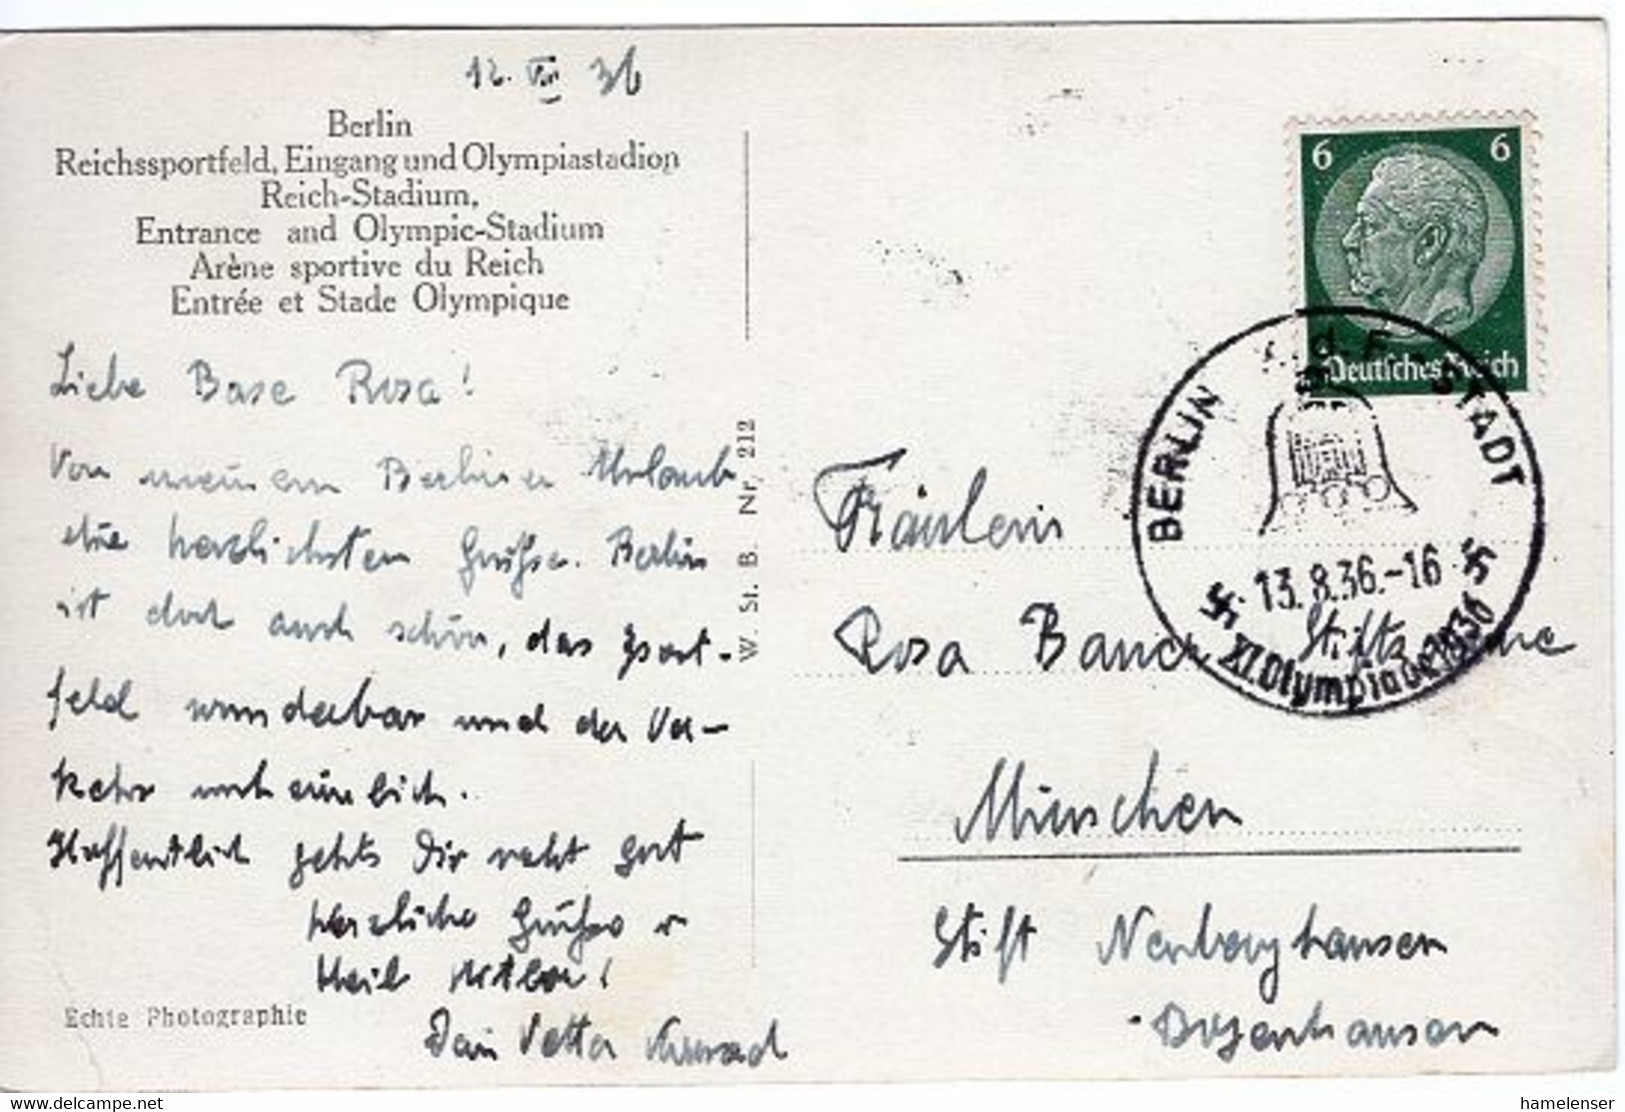 12. VIII 36
Berlin
Reichssportfeld, Eingang und Olympiastadion
Reich-Stadium,
Entrance and Olympic-Stadium
Arène sportive du Reich
Entrée et Stade Olympique
Liebe Base Rosa!
Von meinem Berliner Urlaub
die herzlichsten Grüße. Berlin
ist doch auch schön, das Sport-
feld wunderbar und der Ver-
kehr unheimlich.
Hoffentlich gehts Dir recht gut
herzliche Grüße u
Heil Hitler!
Dein Vetter Konrad
Echte Photographie
W. St. B. Nr. 212
6 6
Deutsches Reich
BERLIN K.d.F.-STADT
13.8.36.-16
XI. Olympiade 1936
Fräulein
Rosa Bauer Stiftsdame
München
Stift Neuberghausen
Bogenhausen
hamelenser
www.delcampe.net